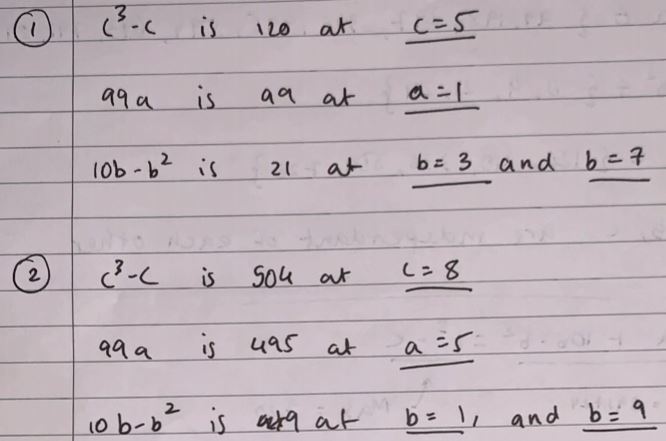 ① c³-c is 120 at c=5
99a is 99 at a=1
10b-b² is 21 at b=3 and b=7
② c³-c is 504 at c=8
99a is 495 at a=5
10b-b² is 9 at b=1, and b=9